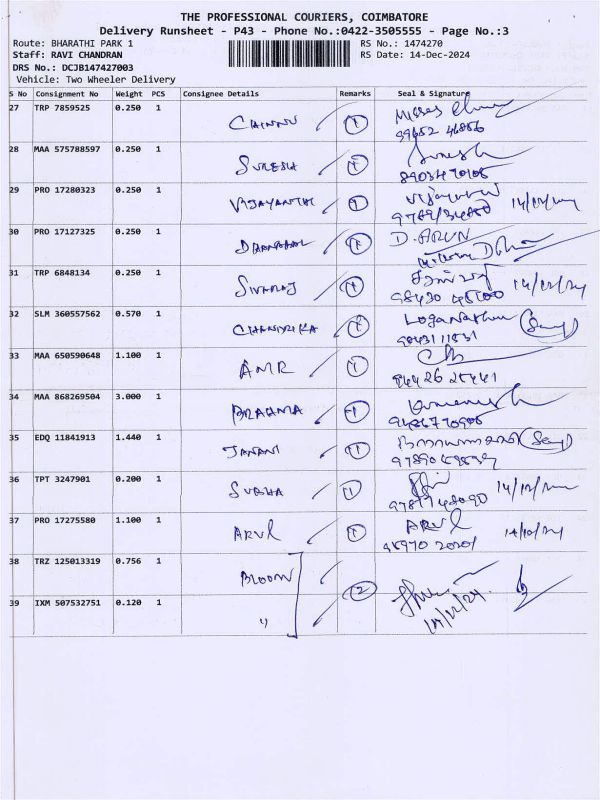 THE PROFESSIONAL COURIERS, COIMBATORE
Delivery Runsheet - P43 - Phone No.:0422-3505555 - Page No.:3
Route: BHARATHI PARK 1 RS No.: 1474270
Staff: RAVI CHANDRAN RS Date: 14-Dec-2024
DRS No.: DCJB147427003
Vehicle: Two Wheeler Delivery
S No Consignment No Weight PCS Consignee Details Remarks Seal & Signature
27 TRP 7859525 0.250 1 CHINNU 1
28 MAA 575788597 0.250 1 SURESH 1 Suresh
29 PRO 17280323 0.250 1 VIJAYANTHI 1 14/12/24
30 PRO 17127325 0.250 1 1 D. ARUN
31 TRP 6848134 0.250 1 SIVARAJ 1 14/12/24
32 SLM 360557562 0.570 1 CHANDRIKA 1 Loganathan
9043111831
33 MAA 650590648 1.100 1 AMR 1
94426 25441
34 MAA 868269504 3.000 1 BRAHMA 1
35 EDQ 11841913 1.440 1 JANANI 1
36 TPT 3247901 0.200 1 SUBHA 1
37 PRO 17275580 1.100 1 ARUL 1 ARUL
38 TRZ 125013319 0.756 1 BLOOM 2
39 IXM 507532751 0.120 1 " 14/12/24.